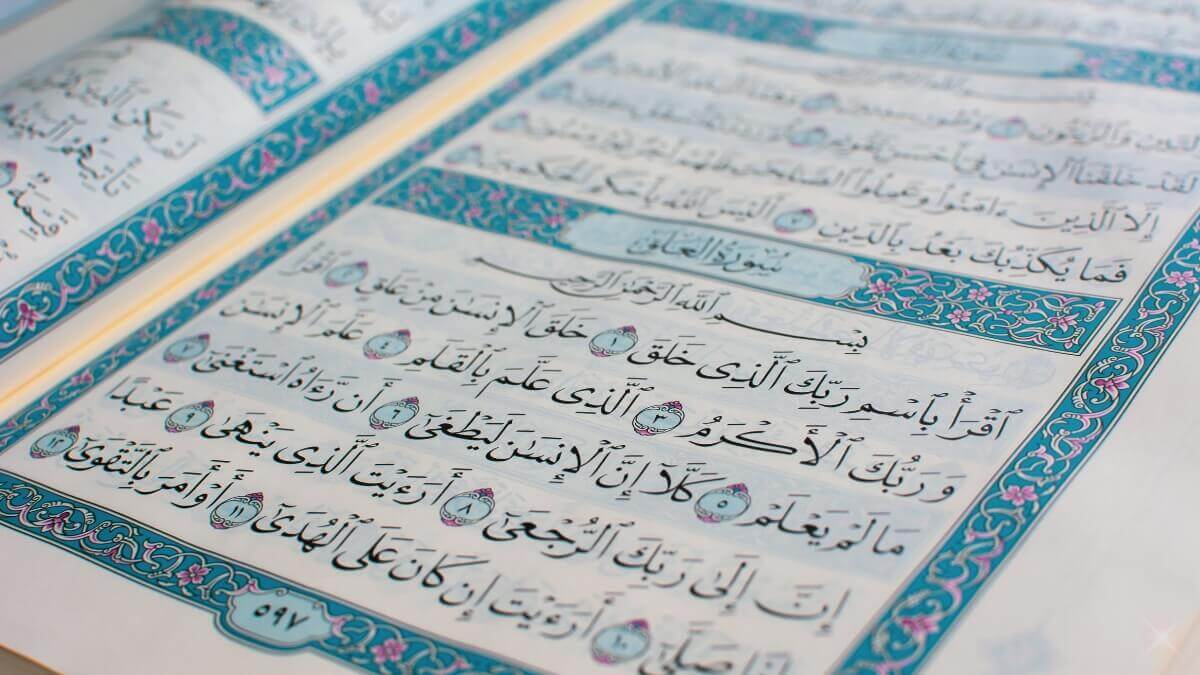 وَٱلتِّينِ وَٱلزَّيْتُونِ ١ وَطُورِ سِينِينَ ٢ وَهَٰذَا ٱلْبَلَدِ ٱلْأَمِينِ ٣
لَقَدْ خَلَقْنَا ٱلْإِنسَٰنَ فِىٓ أَحْسَنِ تَقْوِيمٍ ٤
إِلَّا ٱلَّذِينَ ءَامَنُوا۟ وَعَمِلُوا۟ ٱلصَّٰلِحَٰتِ فَلَهُمْ أَجْرٌ غَيْرُ مَمْنُونٍ ٦
فَمَا يُكَذِّبُكَ بَعْدُ بِٱلدِّينِ ٧ أَلَيْسَ ٱللَّهُ بِأَحْكَمِ ٱلْحَٰكِمِينَ ٨
سُورَةُ العَلَق
بِسْمِ ٱللَّهِ ٱلرَّحْمَٰنِ ٱلرَّحِيمِ
ٱقْرَأْ بِٱسْمِ رَبِّكَ ٱلَّذِى خَلَقَ ١ خَلَقَ ٱلْإِنسَٰنَ مِنْ عَلَقٍ ٢ ٱقْرَأْ
وَرَبُّكَ ٱلْأَكْرَمُ ٣ ٱلَّذِى عَلَّمَ بِٱلْقَلَمِ ٤ عَلَّمَ ٱلْإِنسَٰنَ
مَا لَمْ يَعْلَمْ ٥ كَلَّآ إِنَّ ٱلْإِنسَٰنَ لَيَطْغَىٰٓ ٦ أَن رَّءَاهُ ٱسْتَغْنَىٰٓ ٧
إِنَّ إِلَىٰ رَبِّكَ ٱلرُّجْعَىٰٓ ٨ أَرَءَيْتَ ٱلَّذِى يَنْهَىٰ ٩ عَبْدًا
إِذَا صَلَّىٰٓ ١٠ أَرَءَيْتَ إِن كَانَ عَلَى ٱلْهُدَىٰٓ ١١ أَوْ أَمَرَ بِٱلتَّقْوَىٰٓ ١٢
٥٩٧
لَمْ يَكُنِ ٱلَّذِينَ
تَأْتِيَهُمُ ٱلْبَيِّنَةُ